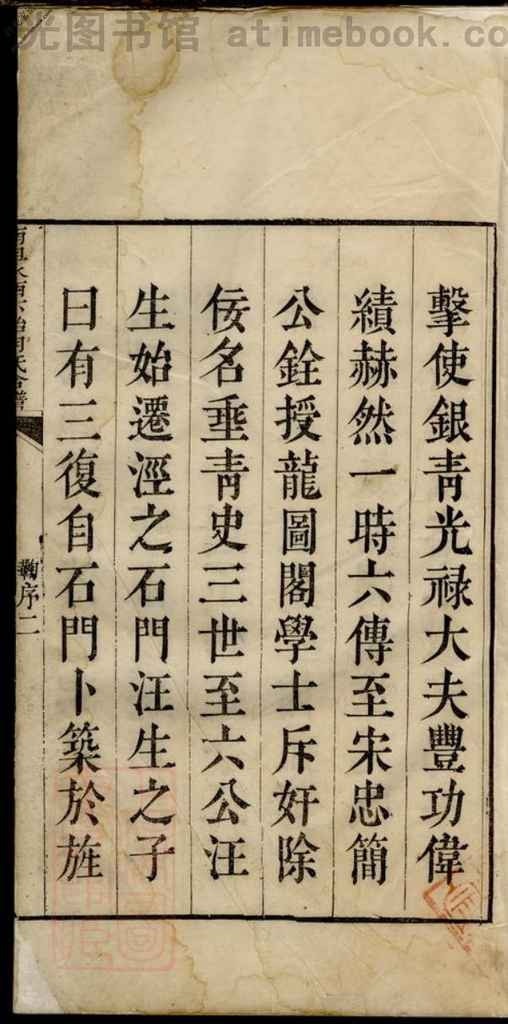 光图书馆 atimebook.com
擊使銀青光祿大夫豐功偉
績赫然一時六傳至宋忠簡
公銓授龍圖閣學士斥奸除
佞名垂青史三世至六公汪
生始遷涇之石門汪生之子
曰有三復自石門卜築於旌
序二